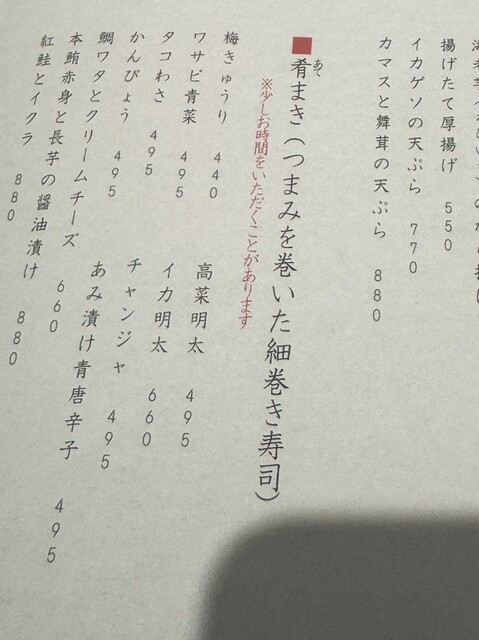 揚げたて厚揚げ 550
イカゲソの天ぷら 770
カマスと舞茸の天ぷら 880
■肴まき(つまみを巻いた細巻き寿司)
あて
※少しお時間をいただくことがあります
梅きゅうり 440
高菜明太 495
ワサビ青菜 495
イカ明太 660
タコわさ 495
チャンジャ 495
かんぴょう 495
あみ漬け青唐辛子 495
鯛ワタとクリームチーズ 660
本鮪赤身と長芋の醤油漬け 880
紅鮭とイクラ 880